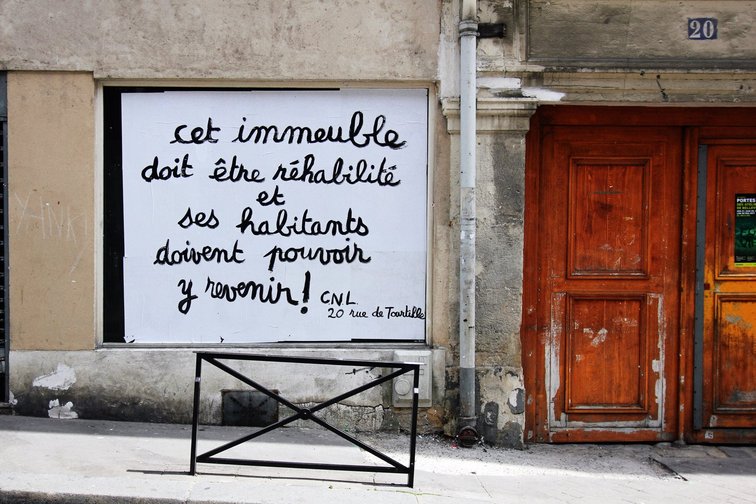 20
cet immeuble
doit être réhabilité
et
ses habitants
doivent pouvoir
y revenir!
C.N.L.
20 rue de Tourtille
PORTES